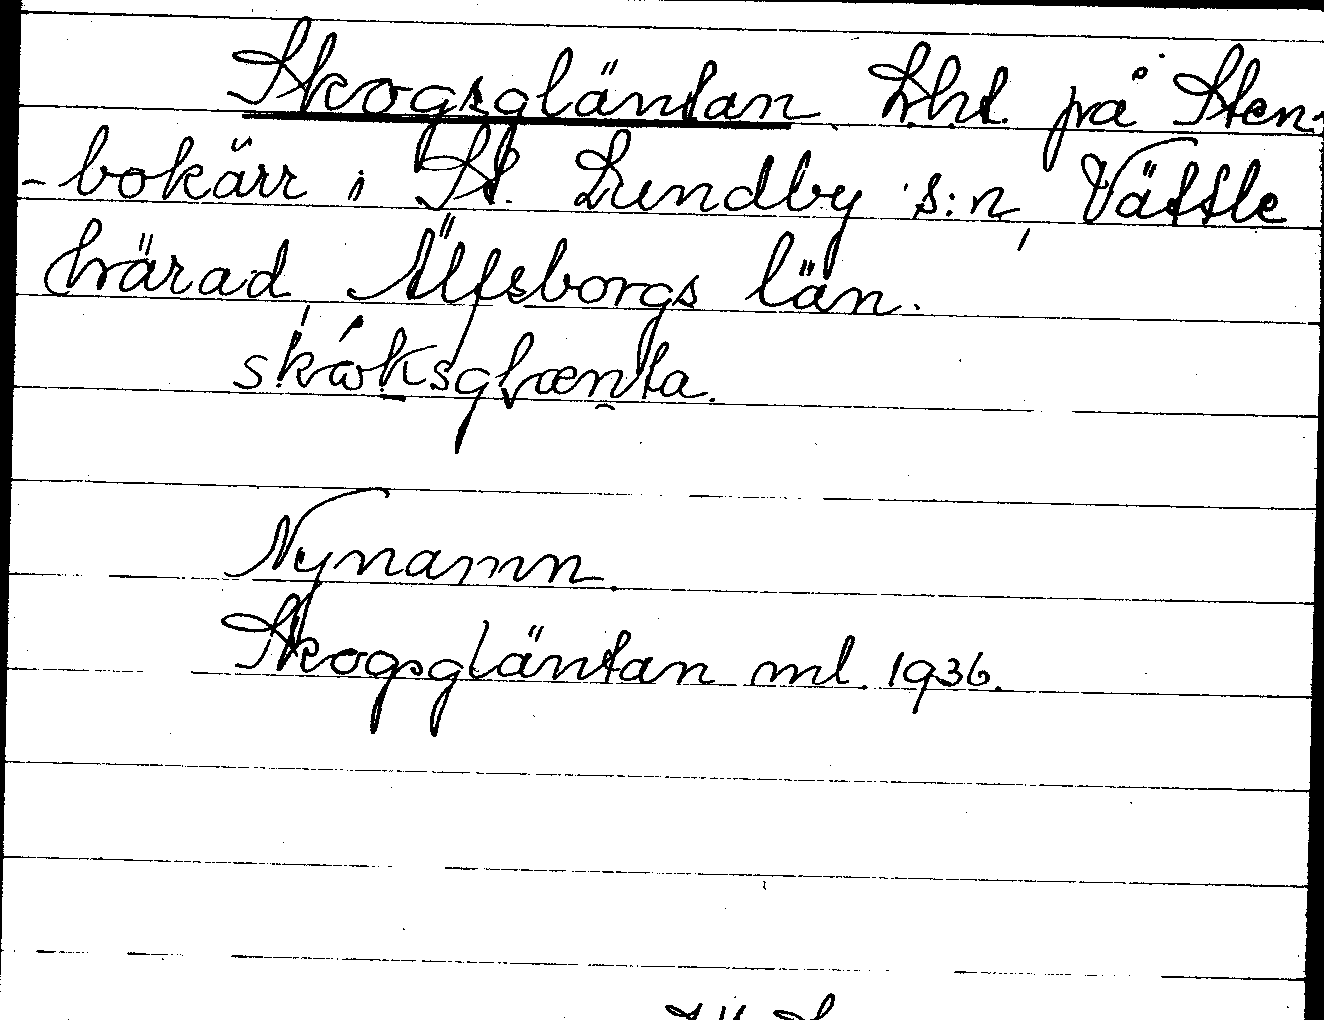 Skogsgläntan. Lht. på Sten-
-bokärr i St. Lundby s:n, Vättle
härad, Älfsborgs län.
skóksglænta.
Nynamn.
Skogsgläntan ml. 1936.